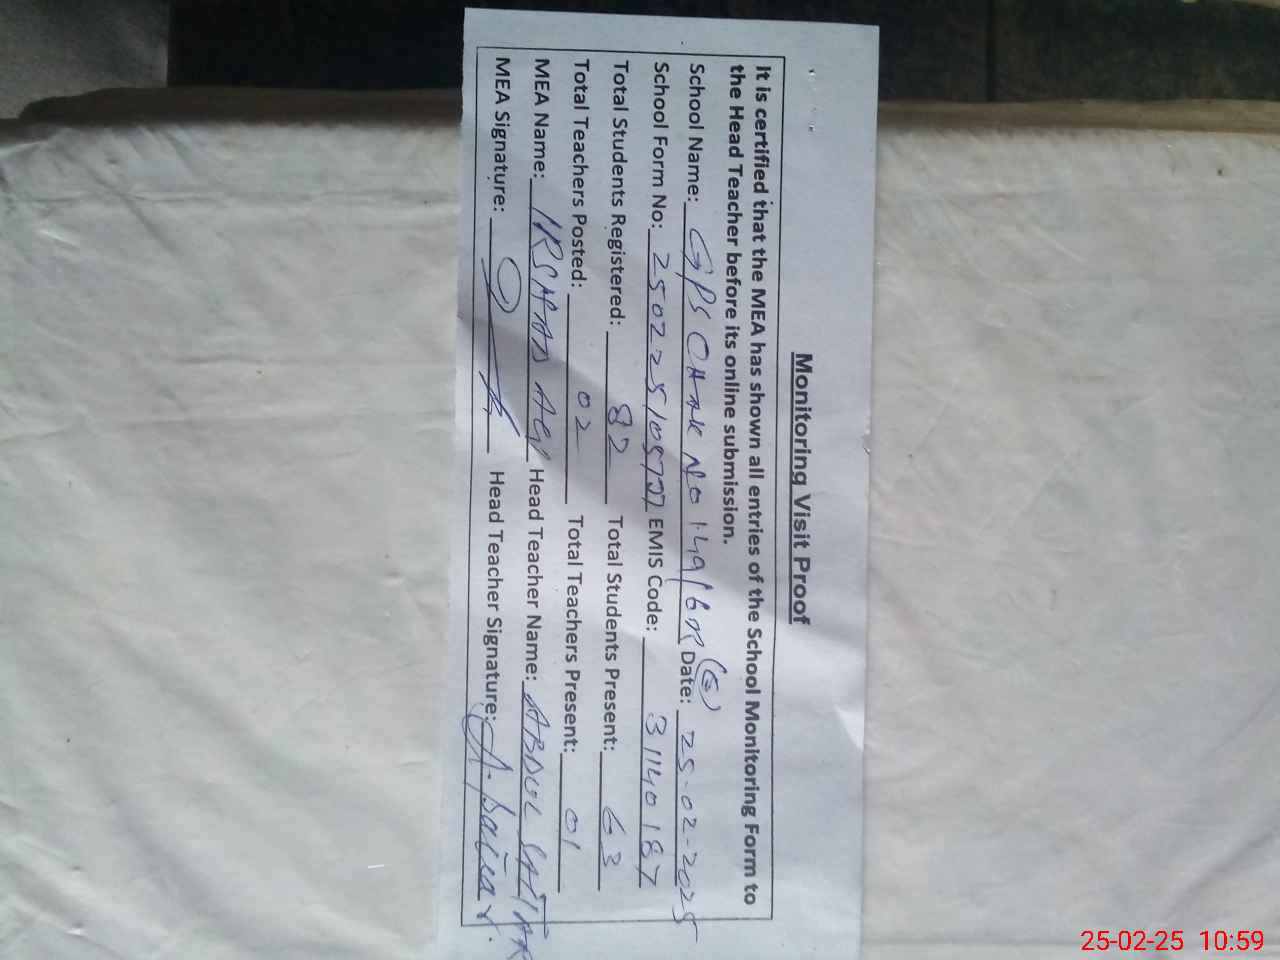 Monitoring Visit Proof
It is certified that the MEA has shown all entries of the School Monitoring Form to
the Head Teacher before its online submission.
School Name: GPS CHAK NO 149/6R (E) Date: 25-02-2025
School Form No: EMIS Code: 31140187
Total Students Registered: 82 Total Students Present: 63
Total Teachers Posted: 02 Total Teachers Present: 01
MEA Name: IRSHAD ALI Head Teacher Name: ABDUL SATTAR
MEA Signature: Head Teacher Signature: A. Sattar
25-02-25 10:59